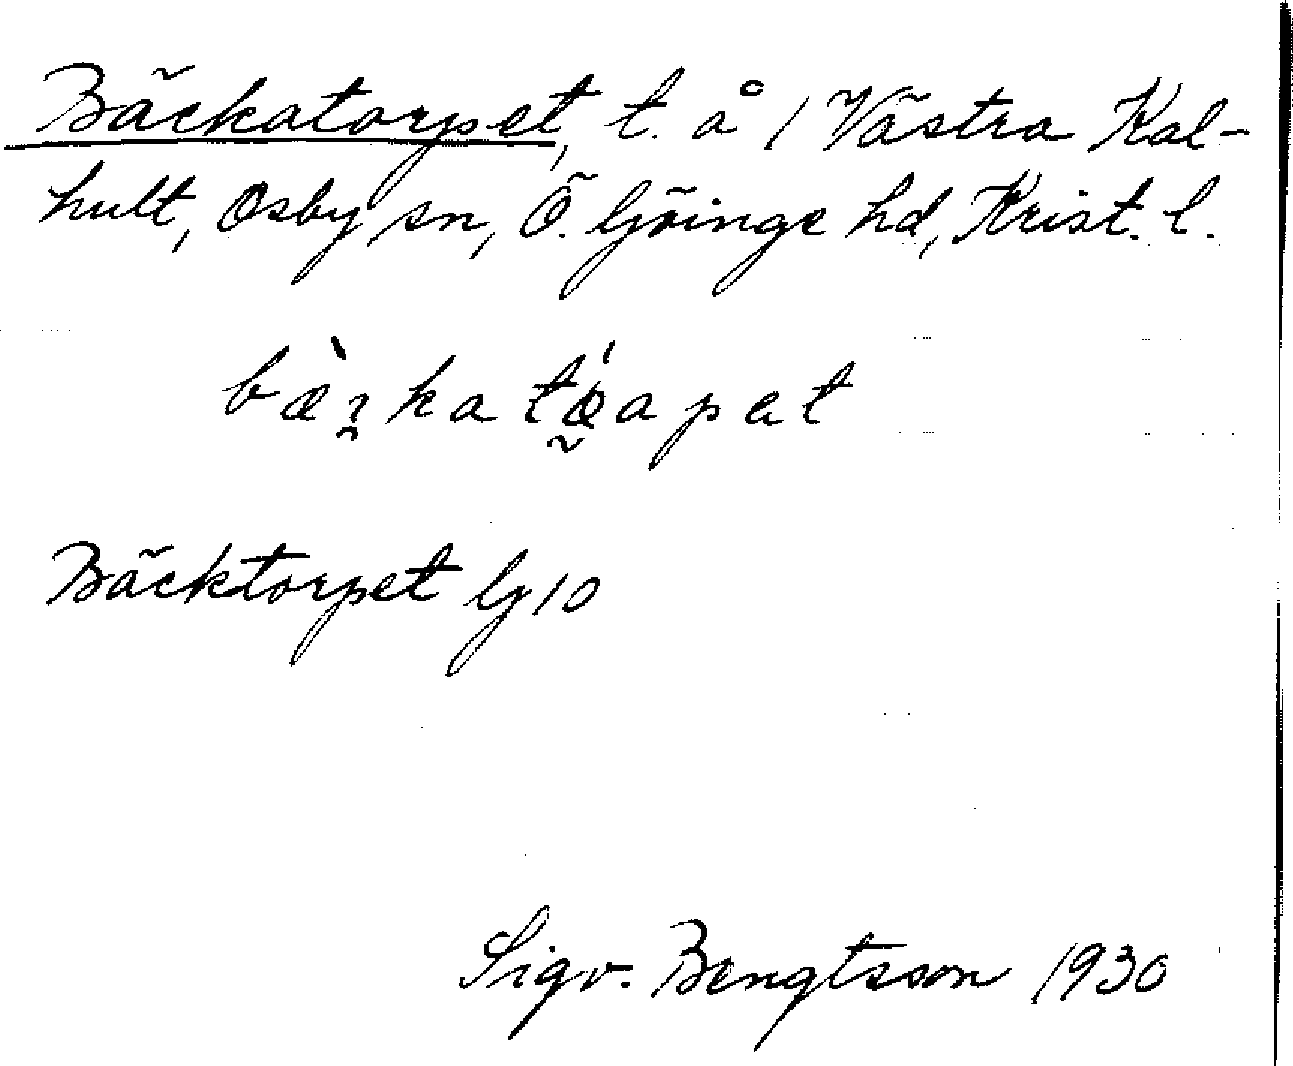 Bäckatorpet, t. å 1 Västra Kal-
hult, Osby sn, Ö. Göinge hd, Krist. l.
Bäcktorpet G 10
Sigv. Bengtsson 1930